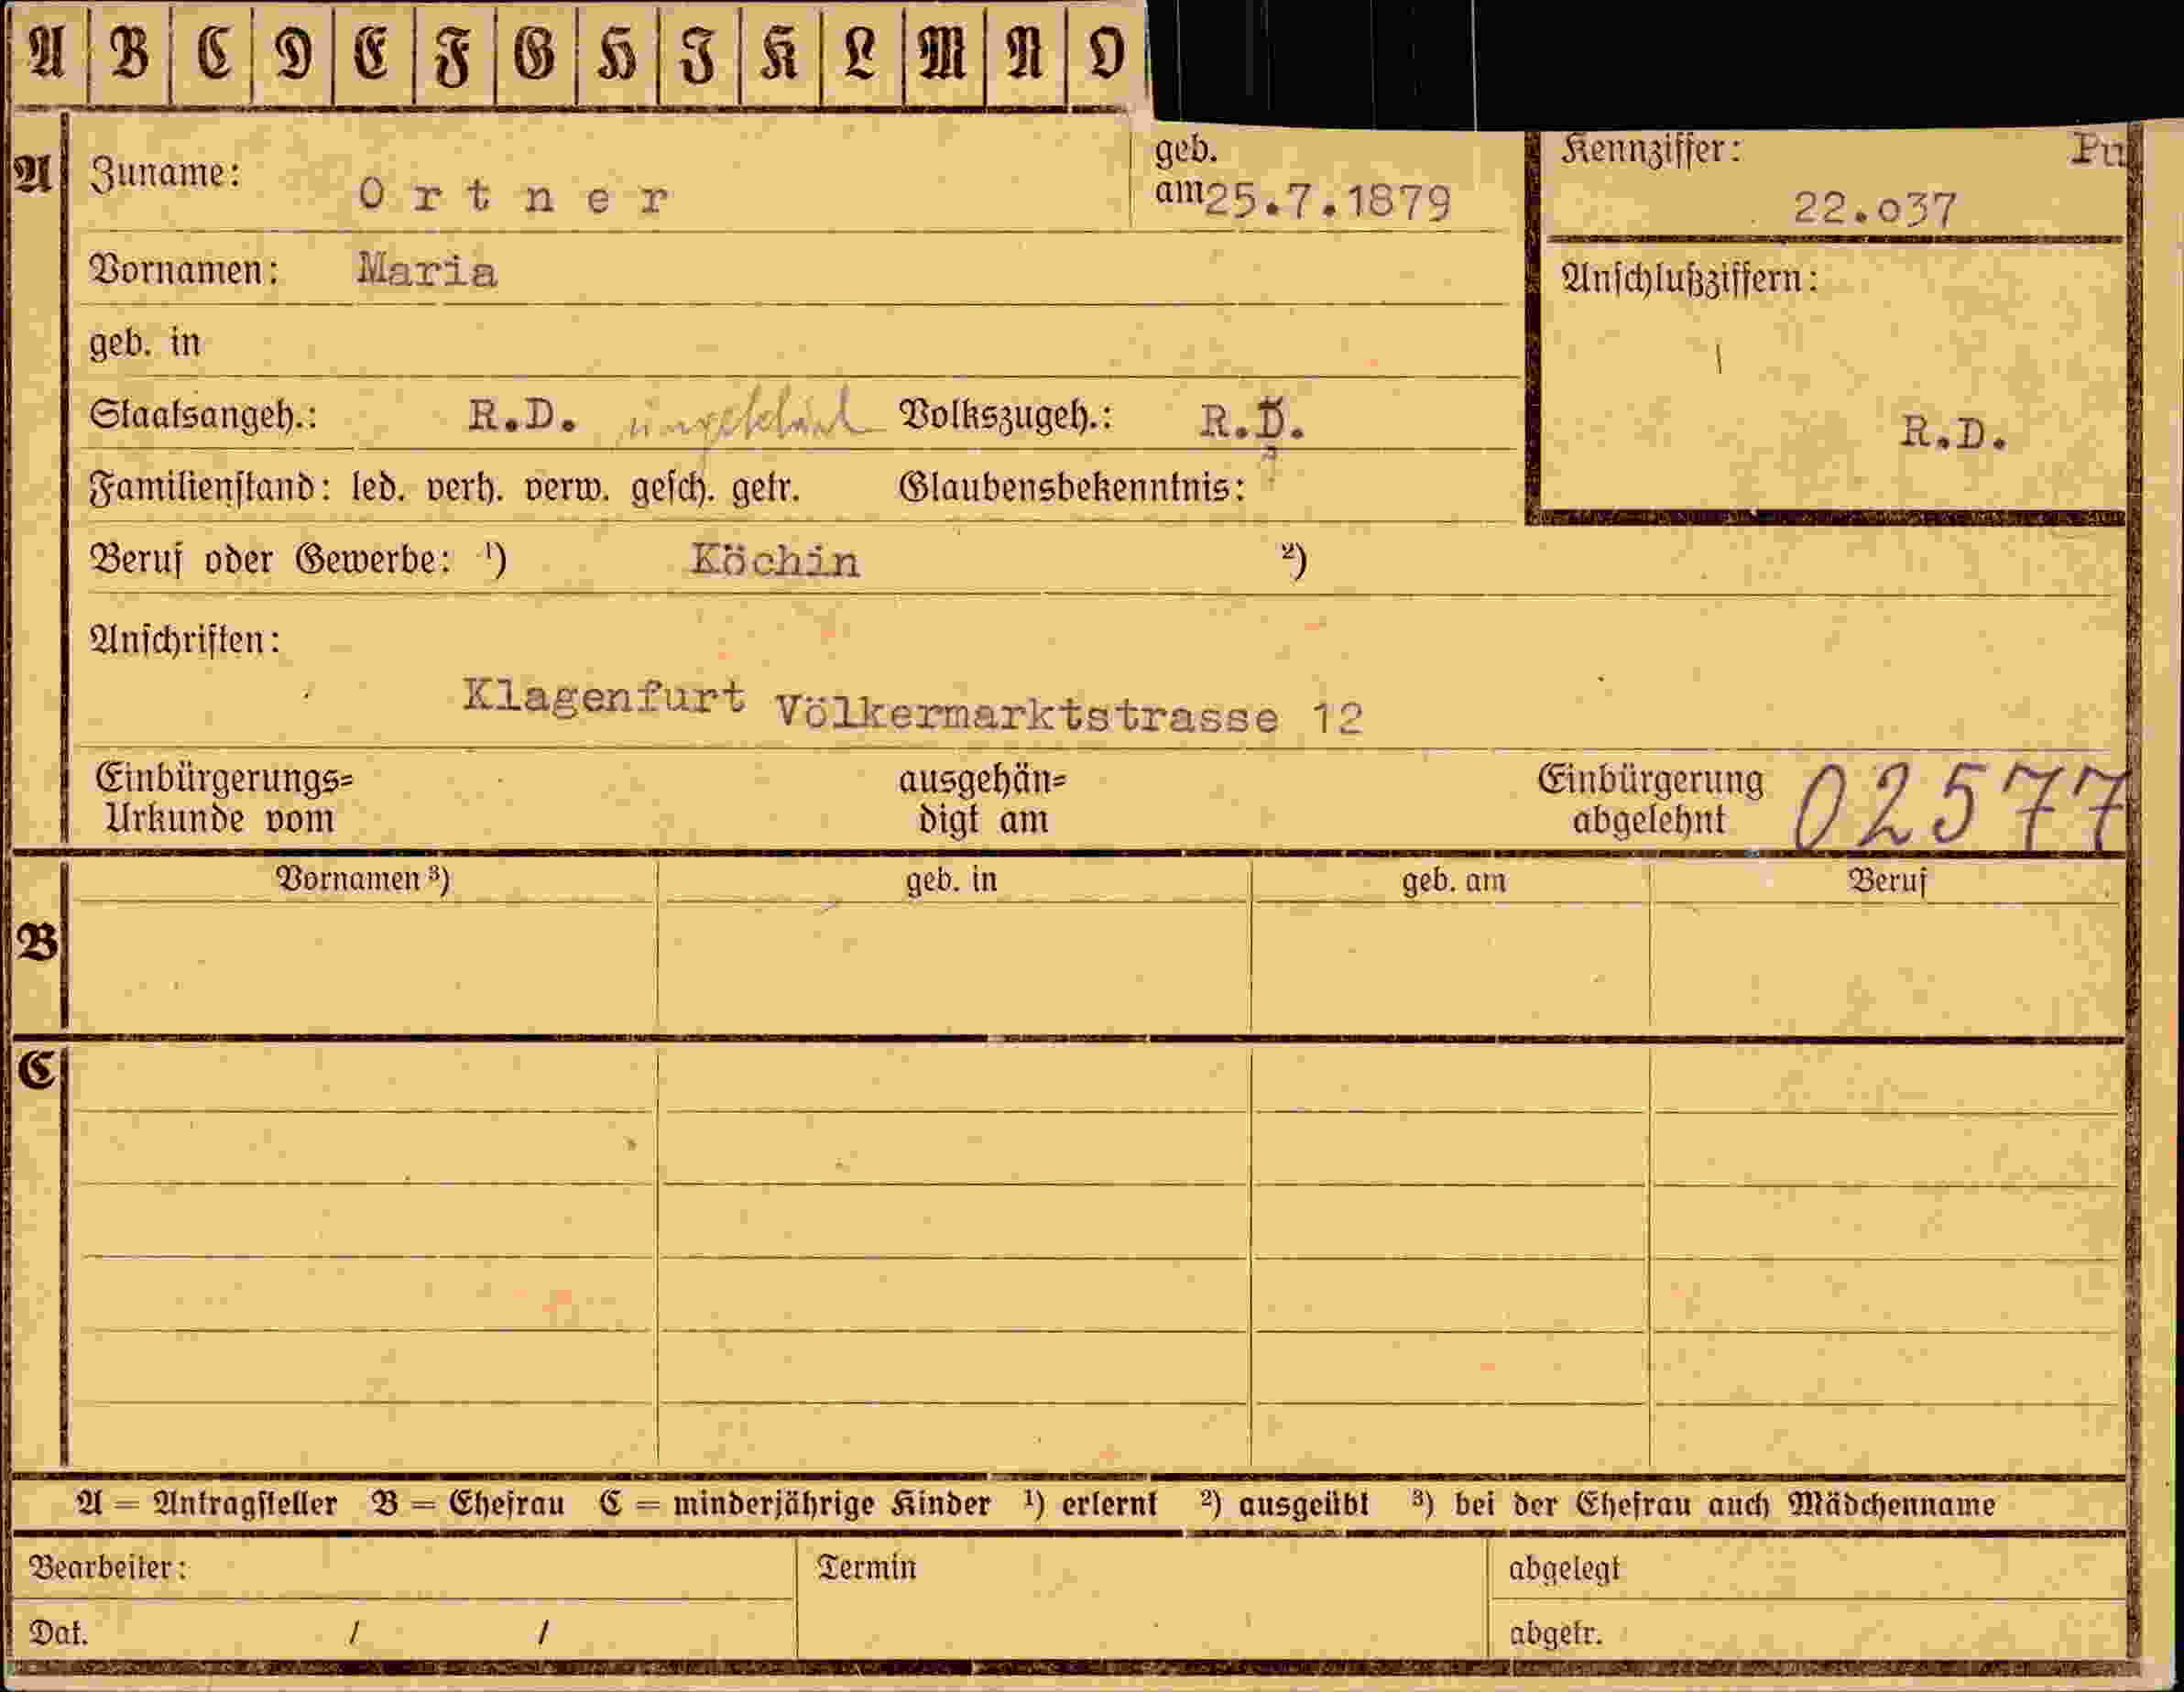 A B C D E F G H I K L M N O
A
Zuname: Ortner
geb. am 25.7.1879
Kennziffer: Pu
22.037
Vornamen: Maria
Anschlußziffern:
geb. in
Staatsangeh.: R.D. ungeklärt Volkszugeh.: R.D.
R.D.
Familienstand: led. verh. verw. gesch. getr. Glaubensbekenntnis:
Beruf oder Gewerbe: ¹) Köchin ²)
Anschriften:
Klagenfurt Völkermarktstrasse 12
Einbürgerungs= ausgehän= Einbürgerung 02577
Urkunde vom digt am abgelehnt
Vornamen ³) geb. in geb. am Beruf
B
C
A = Antragsteller B = Ehefrau C = minderjährige Kinder ¹) erlernt ²) ausgeübt ³) bei der Ehefrau auch Mädchenname
Bearbeiter: Termin abgelegt
Dat. / / abgetr.